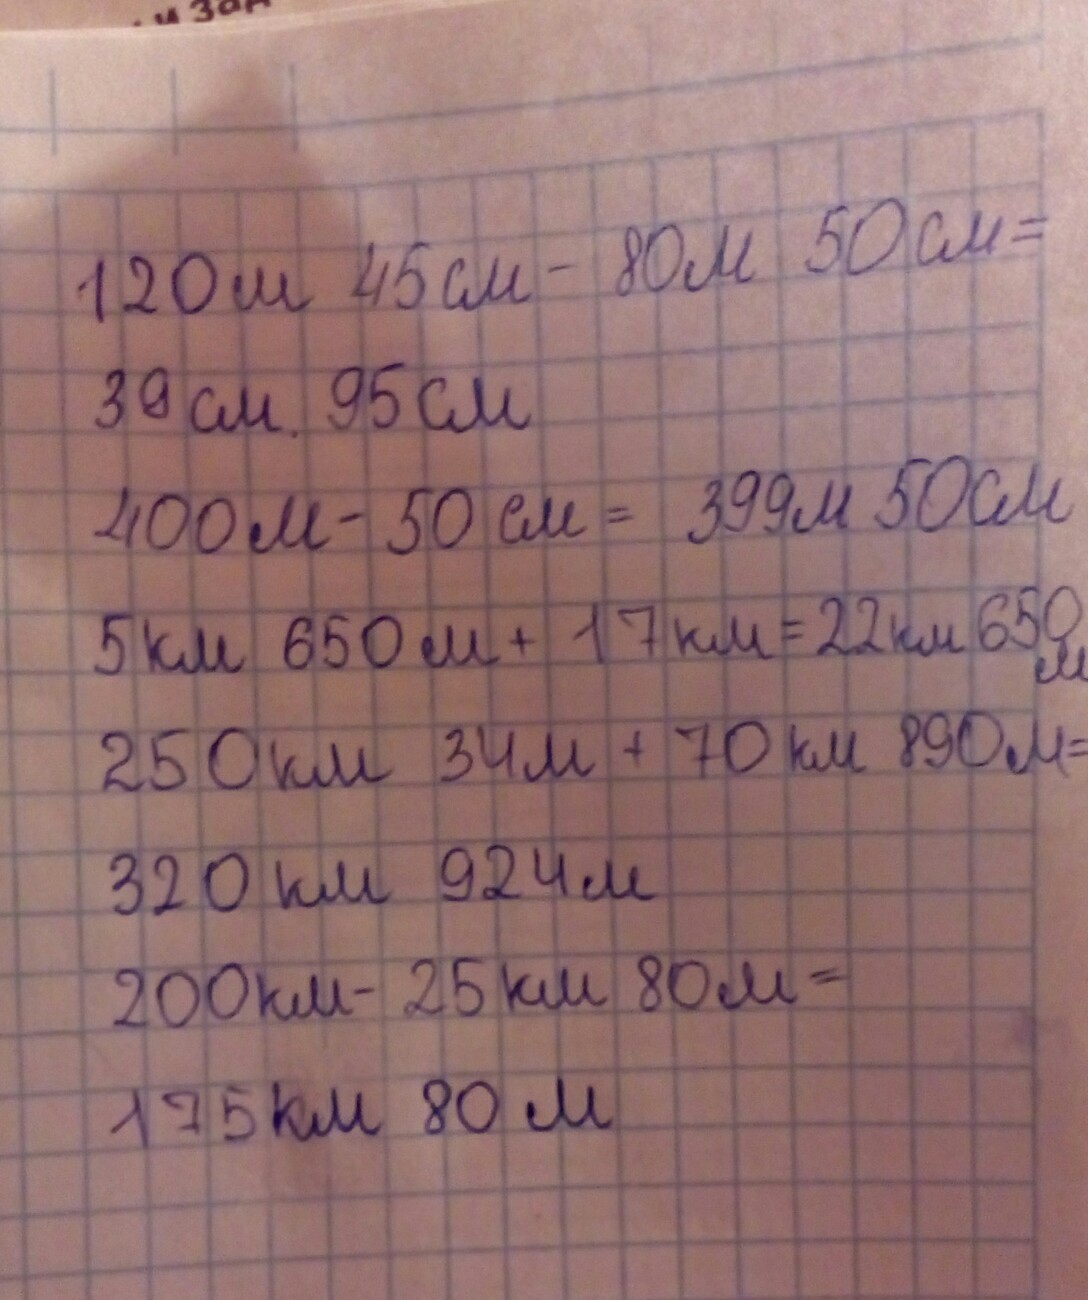 и зад
120м 45см - 80м 50см=
39см. 95см
400м - 50см = 399м 50см
5км 650м + 17км = 22км 650
м
250км 34м + 70км 890м=
320км 924м
200км - 25км 80м =
175км 80м